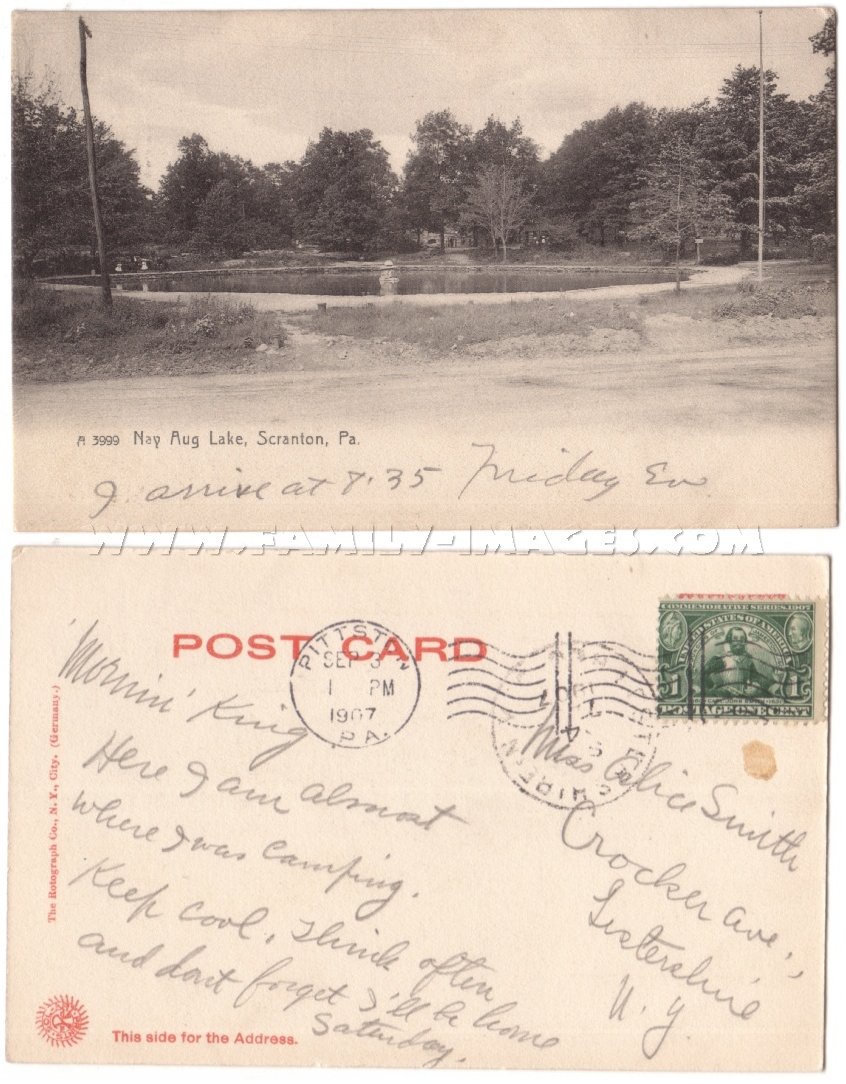 A 3999 Nay Aug Lake, Scranton, Pa.
I arrive at 7.35 Friday Ev
WWW.FAMILY-IMAGES.COM
POST CARD
PITTSTON
SEP 3
1 PM
1907
PA.
COMMEMORATIVE SERIES 1907
UNITED STATES OF AMERICA
1 1
POSTAGE ONE CENT
'Mornin' King
Here I am almost
where I was camping.
Keep cool, think often
and dont forget I'll be home
Saturday.
Miss Alice Smith
Crocker Ave.,
Lestershire
N.Y.
The Rotograph Co., N. Y., City. (Germany.)
This side for the Address.